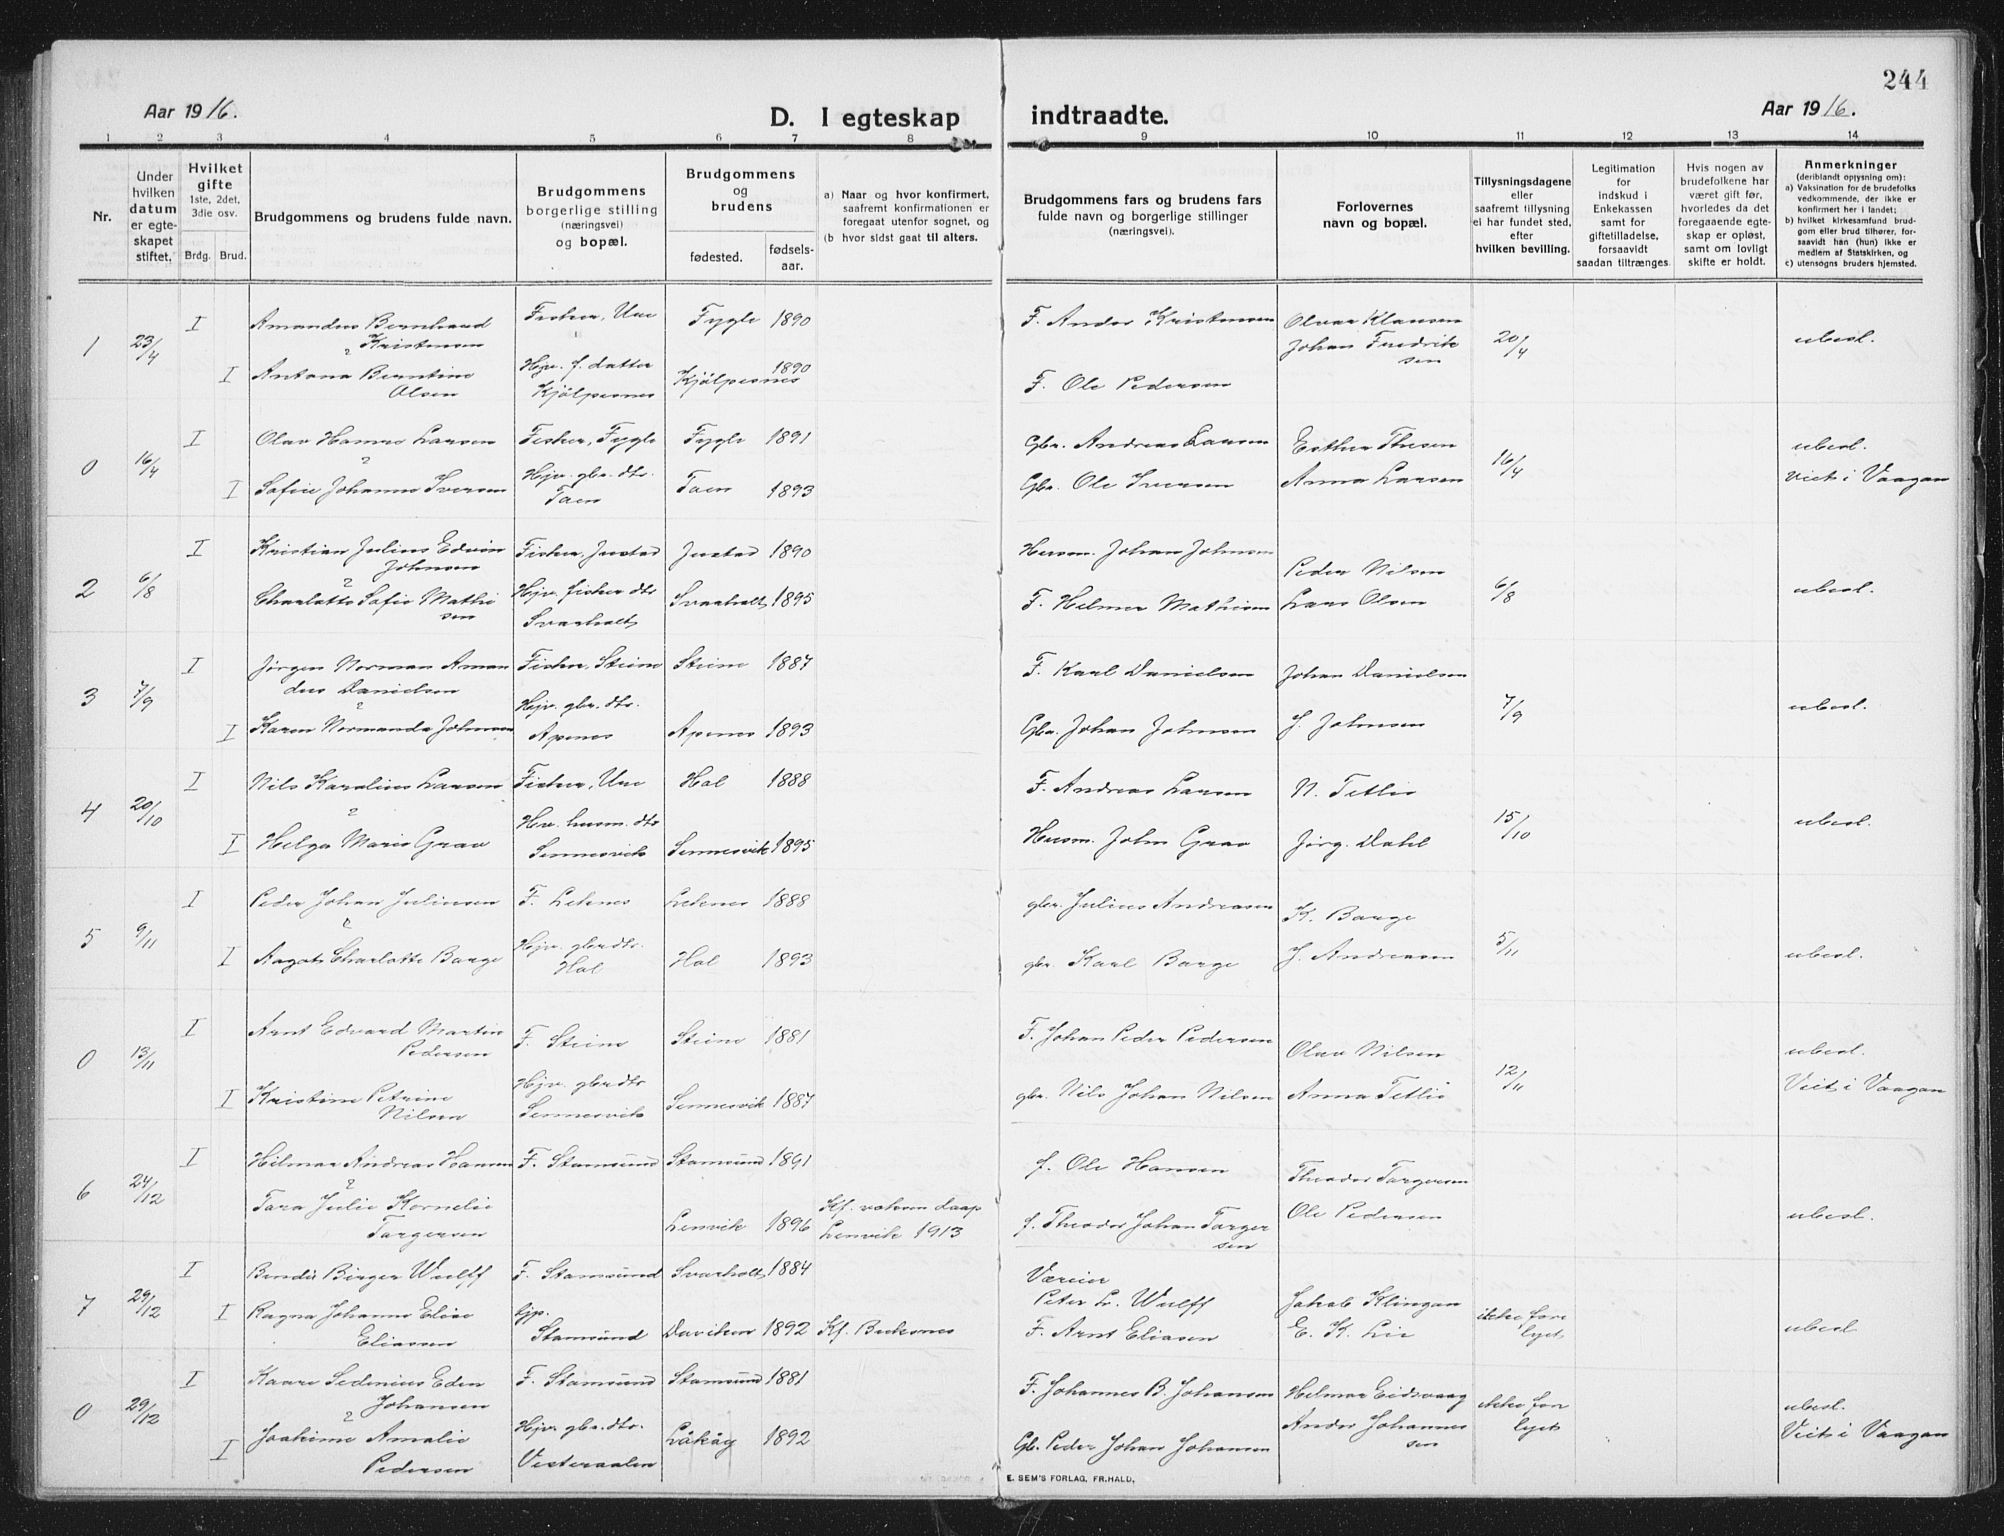 244
Aar 1916.
D. I egteskap indtraadte.
Aar 1916.
1 2 3 4 5 6 7 8 9 10 11 12 13 14
Nr.
Under hvilken datum er egteskapet stiftet.
Hvilket gifte 1ste, 2det, 3die osv.
Brdg. Brud.
Brudgommens og brudens fulde navn.
Brudgommens borgerlige stilling (næringsvei) og bopæl.
Brudgommens og brudens
fødested. fødselsaar.
a) Naar og hvor konfirmert, saafremt konfirmationen er foregaat utenfor sognet, og
(b hvor sidst gaat til alters.
Brudgommens fars og brudens fars fulde navn og borgerlige stillinger (næringsvei).
Forlovernes navn og bopæl.
Tillysningsdagene eller saafremt tillysning ei har fundet sted, efter hvilken bevilling.
Legitimation for indskud i Enkekassen samt for giftetilladelse, forsaavidt saadan tiltrænges.
Hvis nogen av brudefolkene har været gift før, hvorledes da det foregaaende egteskap er opløst, samt om lovligt skifte er holdt.
Anmerkninger (deriblandt oplysning om):
a) Vaksination for de brudefolks vedkommende, der ikke er konfirmert her i landet;
b) hvilket kirkesamfund brudgom eller brud tilhører, forsaavidt han (hun) ikke er medlem af Statskirken, og
c) utensogns bruders hjemsted.
1 23/4 I Amandus Bernhard Kristensen Fisker, Ure Fygle 1890 F. Andor Kristensen Olvar Klausen 20/4 ubesl.
I Antona Berntine Olsen Hjv. f. datter Kjölpesnes Kjölpesnes 1890 F. Ole Pedersen Johan Fredriksen
0 16/4 I Olav Hannes Larsen Fisker, Fygle Fygle 1891 Gbr. Andreas Larsen Esther Thesen 16/4 ubesl.
I Sofie Johanne Iversen Hjv. gbr. dtr. Taen Taen 1893 Gbr. Ole Iversen Anna Larsen Viet i Vaagan
2 6/8 I Kristian Julius Edvin Johnsen Fisker, Justad Justad 1890 Husm. Johan Johnsen Peder Nilsen 6/8 ubesl.
I Charlotte Sofie Mathisen Hjv. fisker dtr Svarholt Svarholt 1895 F. Helmer Mathisen Lars Olsen
3 7/9 I Jørgen Norman Amandus Danielsen Fisker, Steine Steine 1887 F. Karl Danielsen Johan Danielsen 7/9 ubesl.
I Karen Normanda Johnsen Hjv. gbr. dtr. Apenes Apenes 1893 Gbr. Johan Johnsen J. Johnsen
4 20/10 I Nils Karolius Larsen Fisker, Ure Hol 1888 F. Andreas Larsen N. Tetlie 15/10 ubesl.
I Helga Marie Grav Hv. husm. dtr Sennesvik Sennesvik 1895 Husm. John Grav Jørg. Dahl
5 9/11 I Peder Johan Juliussen F. Leknes Leknes 1888 gbr. Julius Andreasen K. Barge 5/11 ubesl.
I Aagot Charlotte Barge Hjv. gbr dtr. Hol Hol 1893 gbr. Karl Barge J. Andreasen
0 13/11 I Arnt Edvard Martin Pedersen F. Steine Steine 1881 F. Johan Peder Pedersen Olav Nilsen 12/11 ubesl.
I Kristine Petrine Nilsen Hjv. gbr dtr Sennesvik Sennesvik 1887 gbr. Nils Johan Nilsen Anna Tetlie Viet i Vaagan
6 24/12 I Hilmar Andreas Hansen F. Stamsund Stamsund 1891 f. Ole Hansen Theodor Torgersen ubesl.
Tora Julie Kornelie Torgersen Lenvik 1896 Kf. voksen daap Lenvik 1913 f. Theodor Johan Torgersen Ole Pedersen
7 29/12 I Bendix Birger Wulff F. Stamsund Svarholt 1884 Væreier Peter L. Wulff Jakob Klingan ikke forelyst ubesl
I Ragna Johanne Elise Eliassen hjp. Stamsund Daviken 1892 Kf. Buksnes F. Arnt Eliasen E. K. Lie
0 29/12 I Kaare Sedenius Eden Johansen F. Stamsund Stamsund 1881 F. Johannes B. Johansen Helmer Eidsvaag ikke forlyst ubesl.
I Joakime Amalie Pedersen Hjv. gbr. dtr. Vesteraalen Låkåg 1892 Gb. Peder Johan Johansen Andor Johannessen Viet i Vaagan
E. SEM'S FORLAG, FR.HALD.